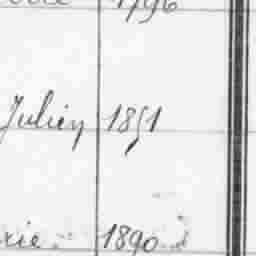 1796
Julien 1851
rie 1890